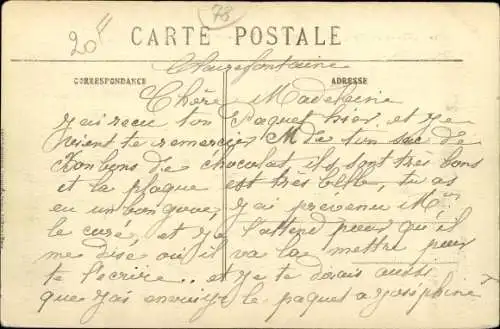 20"
78
CARTE POSTALE
Clairefontaine
CORRESPONDANCE
ADRESSE
Chère Madeleine
j'ai reçu ton paquet hier et je
vient te remercier de ton sac de
bonbons de chocolat ils sont très bons
et la plaque est très belle, tu as
eu un bon gout, j'ai prevenu Mr
le curé, et je l'attend pour qu'il
me dise où il va la mettre pour
te l'ecrire.. et je te dirais aussi
que j'ai envoyé le paquet a Joséphine